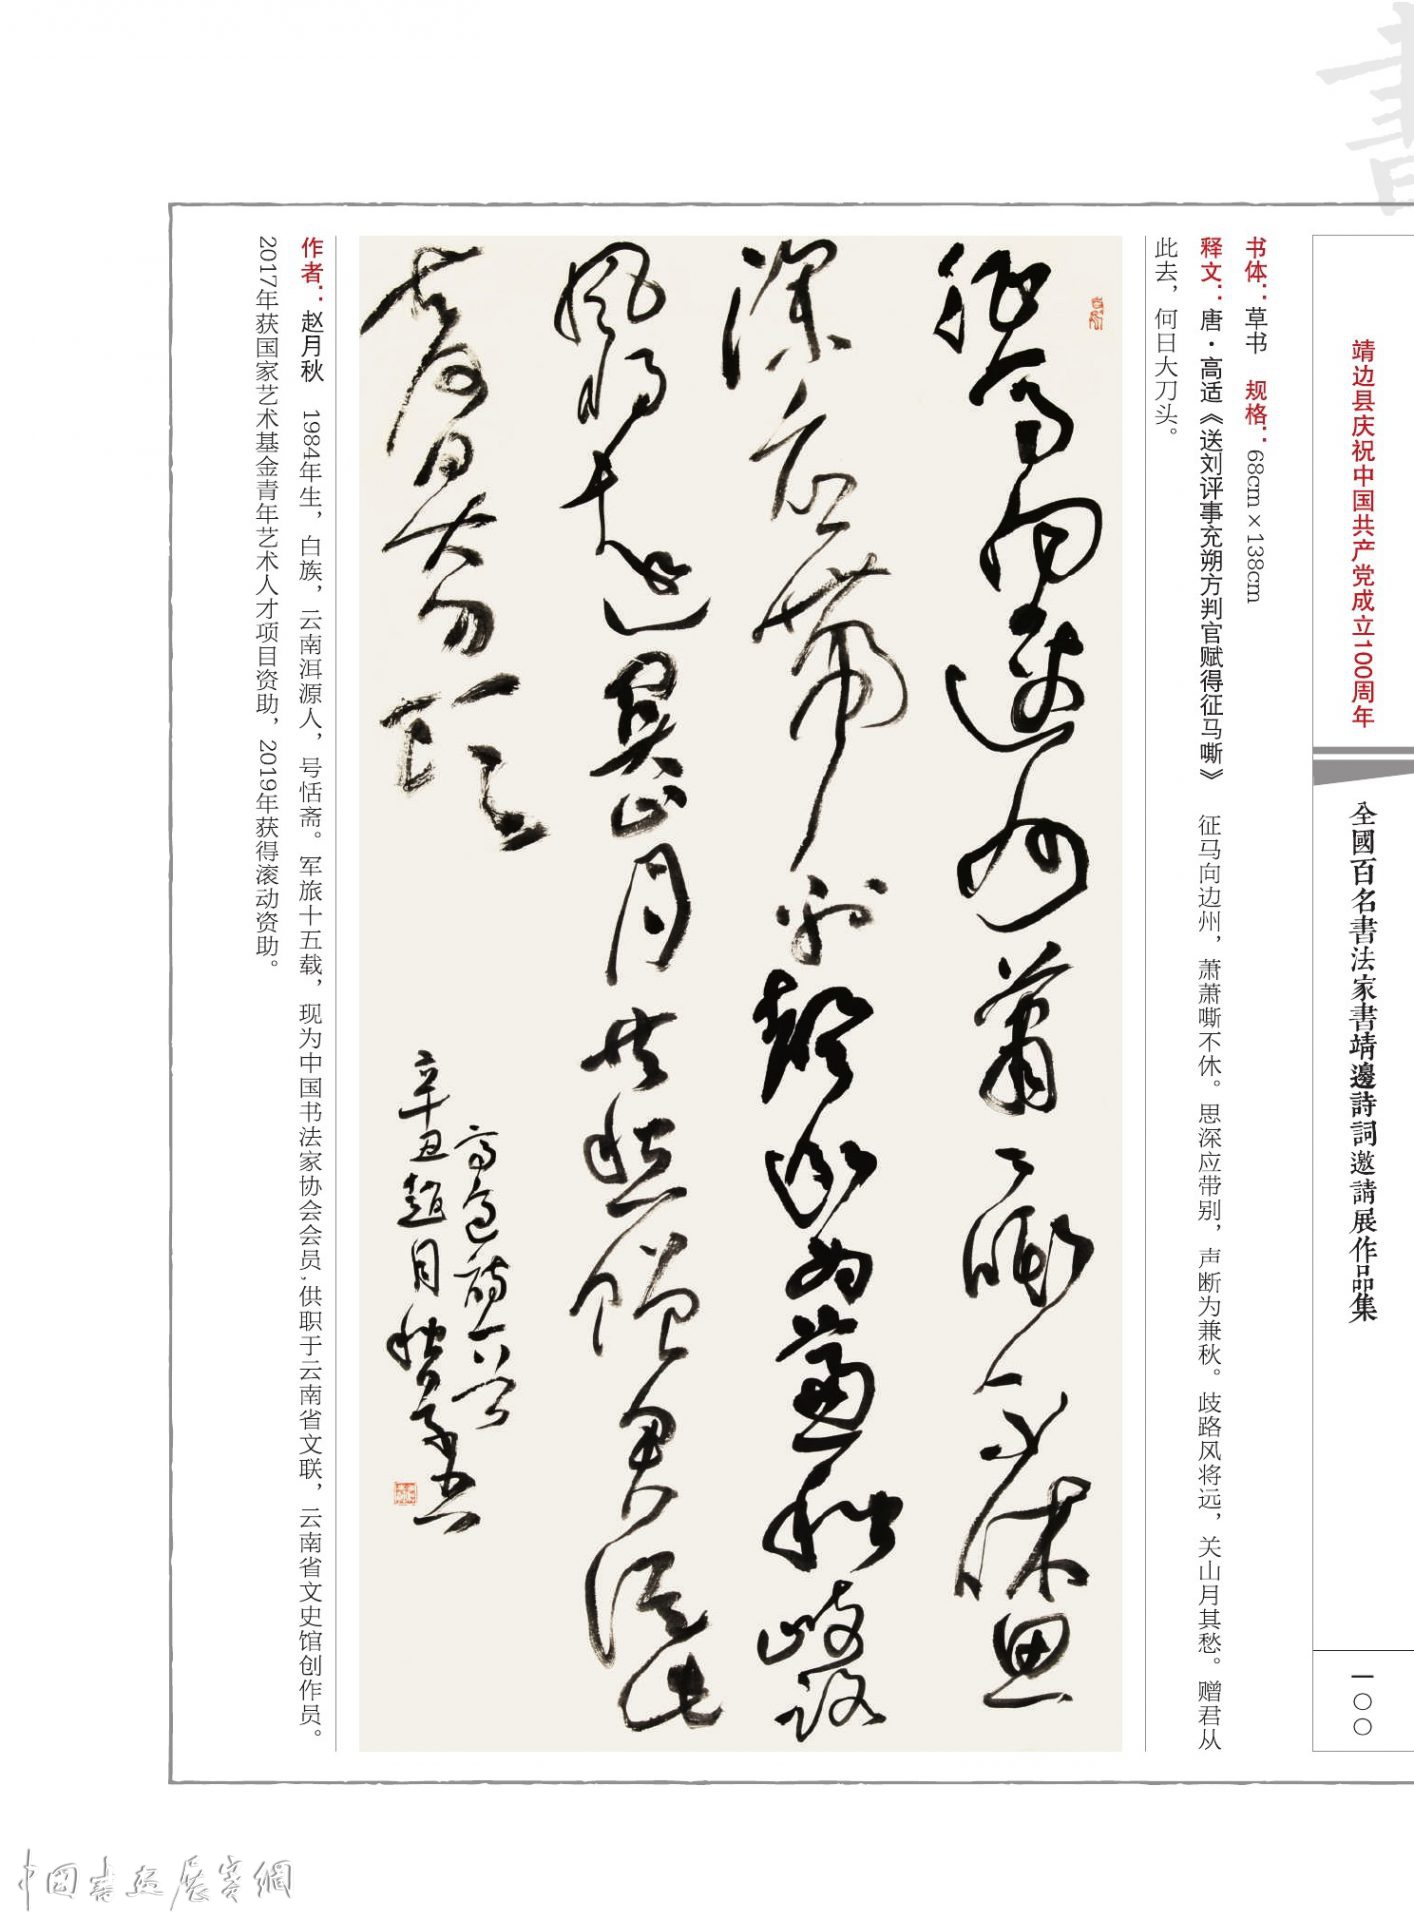 書
靖边县庆祝中国共产党成立100周年
全國百名書法家書靖邊詩詞邀請展作品集
一〇〇
书体：草书　规格：68cm×138cm
释文：唐·高适《送刘评事充朔方判官赋得征马嘶》　征马向边州，萧萧嘶不休。思深应带别，声断为兼秋。歧路风将远，关山月其愁。赠君从
此去，何日大刀头。
征馬向邊州蕭〻嘶不休思
深應帶別聲斷為兼秋歧路
風將遠關山月共愁贈君從此
去何日大刀頭
高適詩一首
辛丑趙月秋書
作者：赵月秋　1984年生，白族，云南洱源人，号恬斋。军旅十五载，现为中国书法家协会会员,供职于云南省文联，云南省文史馆创作员。
2017年获国家艺术基金青年艺术人才项目资助，2019年获得滚动资助。
中國書畫展賽網